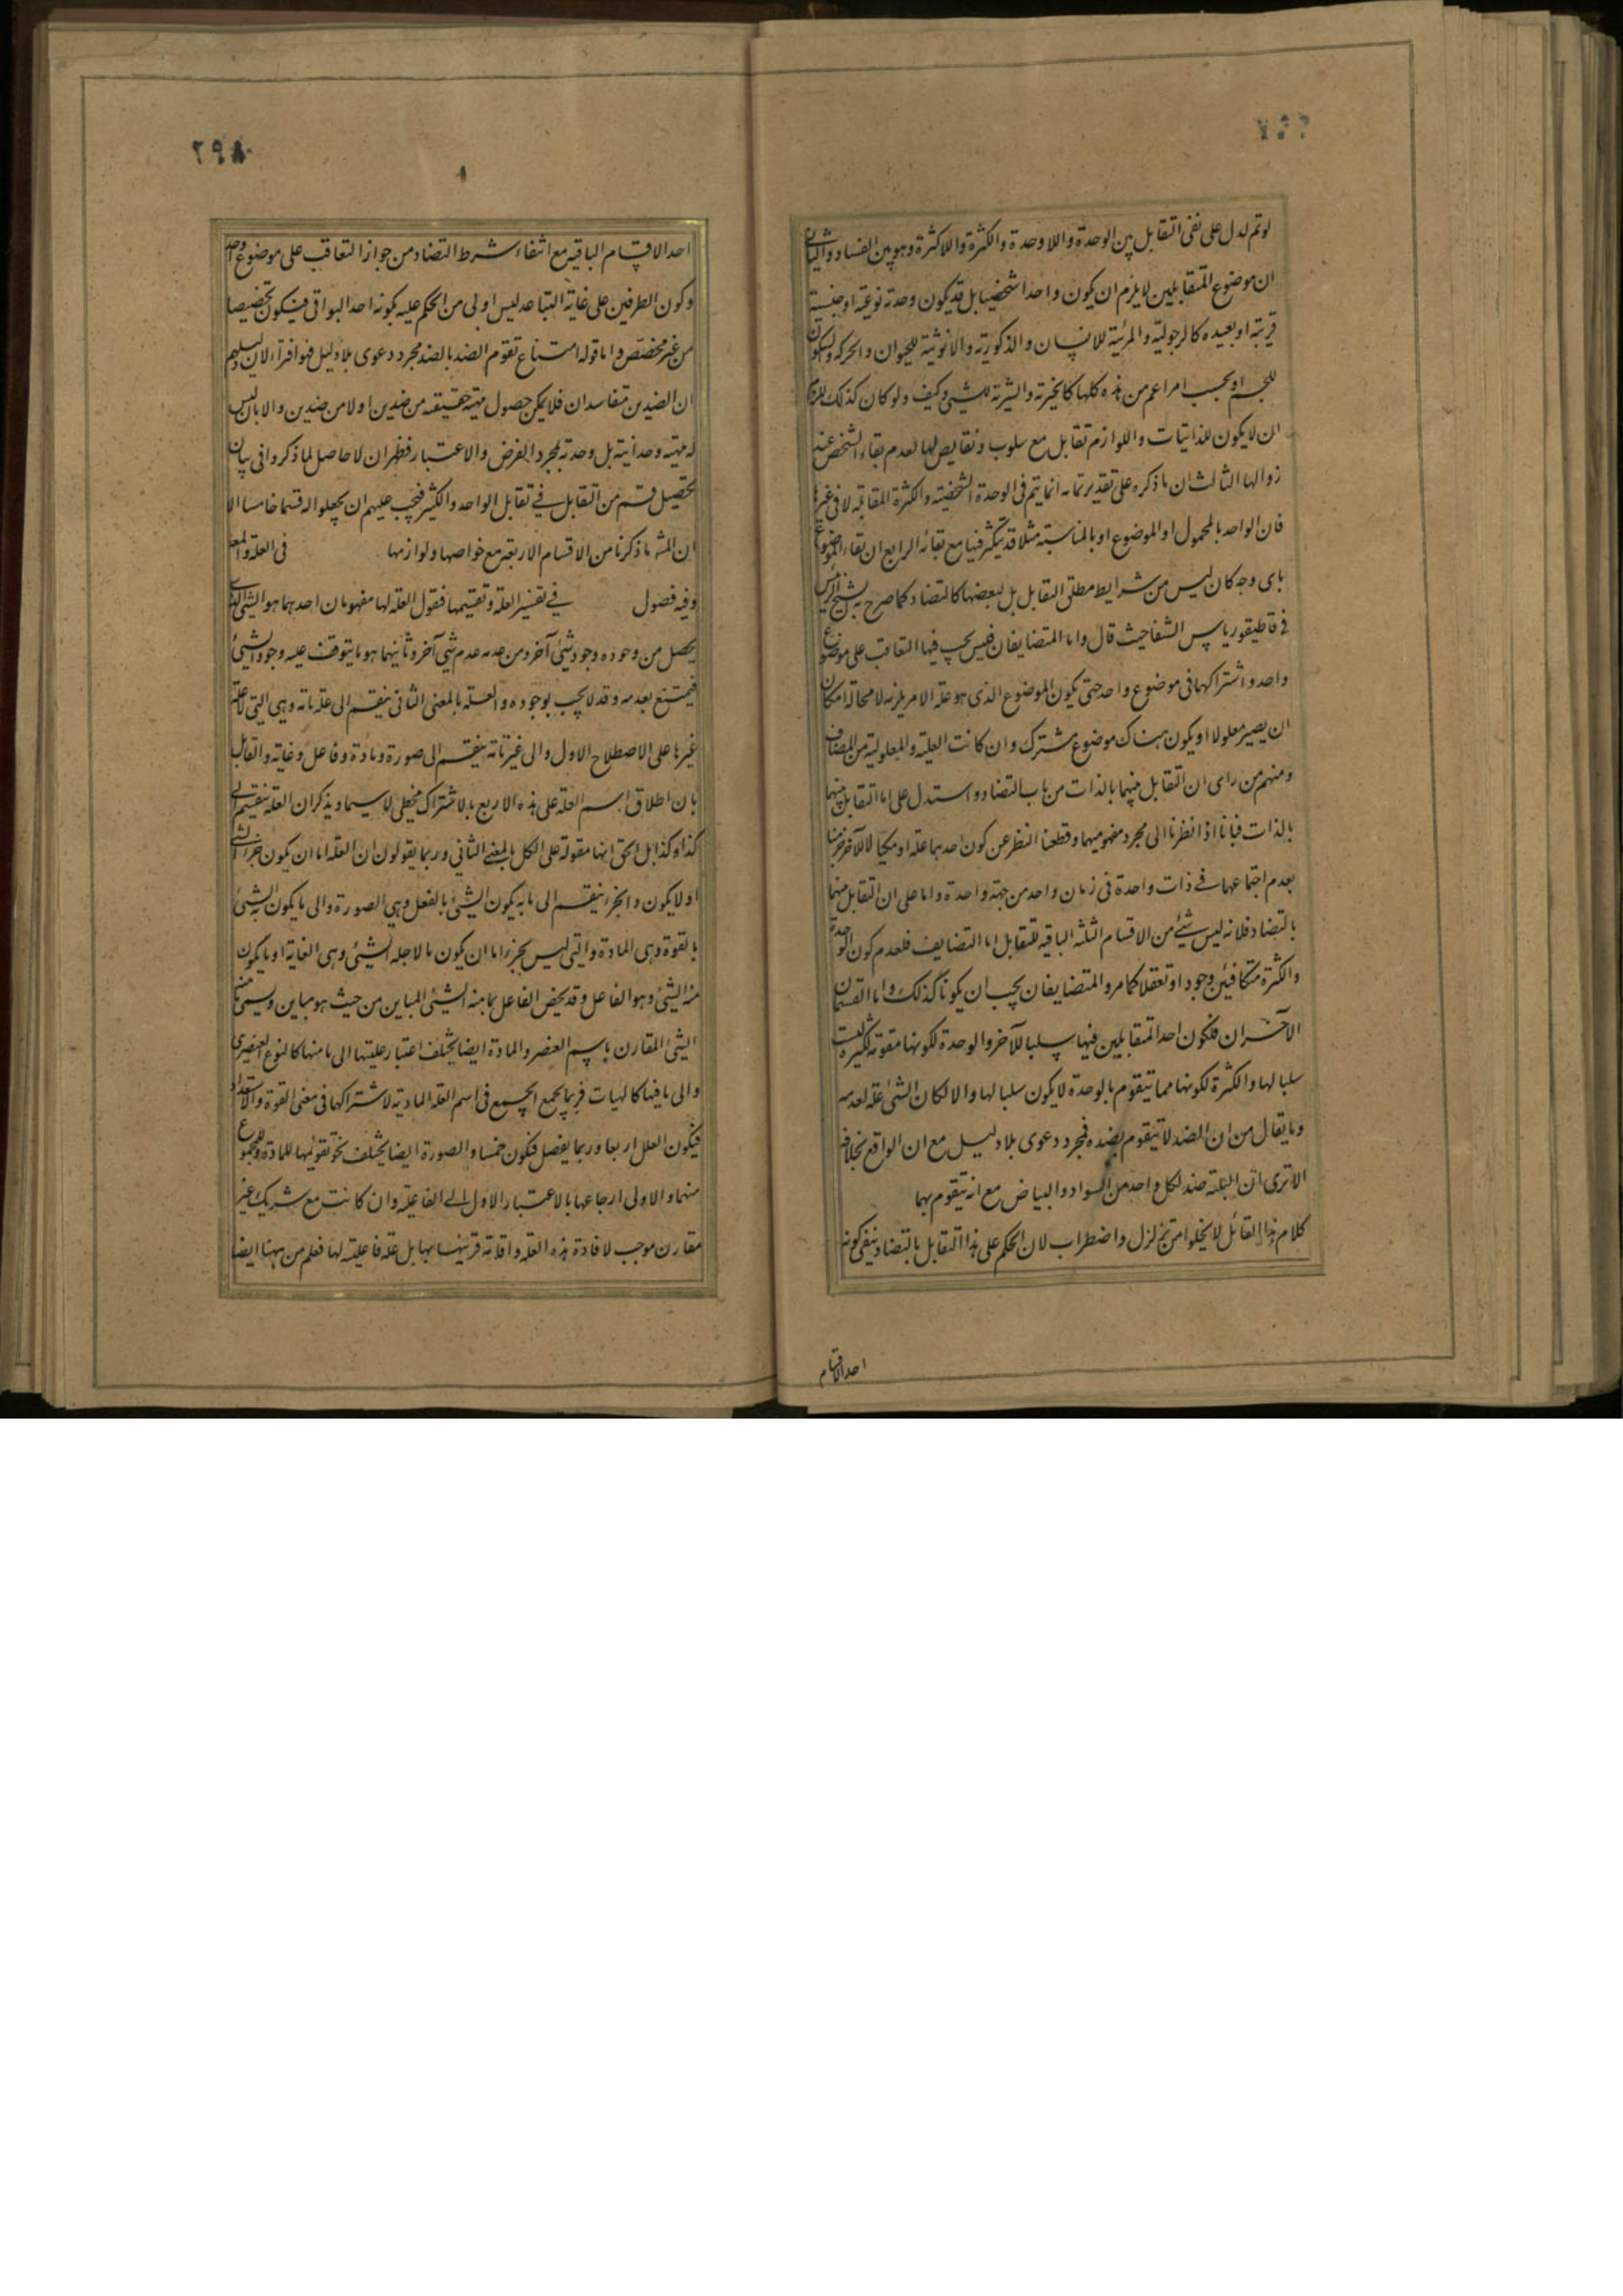 لو تم لدل على نفى التقابل بين الوحدة واللا وحدة والكثرة واللاكثرة وهو بين الفساد والثانى
ان موضوع المتقابلين لا يلزم ان يكون واحدا شخصيا بل قد يكون وحدته نوعية او جنسية
قريبة او بعيده كالرجولية والمرئية للانسان والذكورية والانوثية للحيوان والحركه والسكون
للجسم او بحسب امر اعم من هذه كلها كالخيرية والشرية للشئ وكيف ولو كان كذلك للزم
ان لا يكون للذاتيات واللوازم تقابل مع سلوب ونقايض لها لعدم بقاء الشخص عند
زوالها الثالث ان ما ذكره على تقدير تمامه انما يتم فى الوحدة الشخصية والكثرة المقابلة لا فى غيرها
فان الواحد بالمحمول او الموضوع او بالمناسبة مثلا قد يتكثر فيها مع بقائه الرابع ان بقاء الموضوع
باى وجه كان ليس من شرايط مطلق التقابل بل لبعضها كالتضاد كما صرح به الشيخ الرئيس
فى قاطيقورياس الشفا حيث قال واما المتضايفان فليس يجب فيها التعاقب على موضوع
واحد واشتراكهما فى موضوع واحد حتى يكون الموضوع الذى هو علة الامر يلزمه لا محالة امكان
ان يصير معلولا او يكون هناك موضوع مشترك وان كانت العلية والمعلولية من المضاف
ومنهم من راى ان التقابل بينهما بالذات من باب التضاد واستدل على اما التقابل بينهما
بالذات فبانا اذا نظرنا الى مجرد مفهوميهما وقطعنا النظر عن كون احدهما علة او مكيالا للآخر جزمنا
بعدم اجتماعهما فى ذات واحدة فى زمان واحد من جهة واحدة واما على ان التقابل منهما
بالتضاد فلانه ليس شئ من الاقسام الثلثه الباقيه للتقابل اما التضايف فلعدم كون الوحدة
والكثرة متكافئين وجودا وتعقلا كما مر والمتضايفان يجب ان يكونا كذلك واما القسمان
الآخران فلكون احد المتقابلين فيها سلبا للآخر والوحدة لكونها مقومة للكثيرة ليست
سلبا لها والكثرة لكونها مما يتقوم بالوحدة لا يكون سلبا لها والا لكان الشئ علة لعدمه
وما يقال من ان الضد لا يتقوم بضده فمجرد دعوى بلا دليل مع ان الواقع بخلافه
الا ترى ان البلقة ضد لكل واحد من السواد والبياض مع انه يتقوم بهما
كلام هذا القائل لا يخلوا من تزلزل واضطراب لان الحكم على هذا التقابل بالتضاد بنفى كونه
احد الاقسام
٢٩٨
احد الاقسام الباقيه مع انتفاء شرط التضاد من جواز التعاقب على موضوع واحد
وكون الطرفين على غاية التباعد ليس اولى من الحكم عليه بكونه احد البواقى فيكون تخصيصا
من غير مخصص واما قوله امتناع تقوم الضد بالضد مجرد دعوى بلا دليل فهو افتراء لان
ان الضدين متفاسدان فلا يمكن حصول مهية حقيقية من ضدين اولا من ضدين والابلق ليس
له مهية وحدانية بل وحدته بمجرد الفرض والاعتبار فظهر ان لا حاصل لما ذكروا فى بيان
تحصيل قسم من التقابل فى تقابل الواحد والكثير فيجب عليهم ان يجعلوا له قسما خامسا الا
ان المشهور ما ذكرنا من الاقسام الاربعة مع خواصها ولوازمها فى العلة والمعلول
وفيه فصول فى تفسير العلة وتقسيمها فنقول العلة لها مفهومان احدهما هو الشئ الذى
يحصل من وجوده وجود شئ آخر ومن عدمه عدم شئ آخر وثانيهما هو ما يتوقف عليه وجود الشئ
فيمتنع بعدمه وقد لا يجب بوجوده والعلة بالمعنى الثانى ينقسم الى علة تامة وهى التى لا علة
غيرها على الاصطلاح الاول والى غير تامة ينقسم الى صورة ومادة وفاعل وغاية والقائل
بان اطلاق اسم العلة على هذه الاربع بالاشتراك مخطى لا سيما ويذكر ان العلة ينقسم الى
كذا وكذا بل الحق انها مقولة على الكل بالمعنى الثانى وربما يقولون ان العلة اما ان يكون جزء الشئ
او لا يكون والجزء ينقسم الى ما به يكون الشئ بالفعل وهى الصورة والى ما يكون به الشئ
بالقوة وهى المادة والتى ليس بجزء اما ان يكون ما لاجله الشئ وهى الغاية او ما يكون
منه الشئ وهو الفاعل وقد يخص الفاعل بما منه الشئ المباين من حيث هو مباين ويسمى ما منه
الشئ المقارن باسم العنصر والمادة ايضا يختلف اعتبار عليتها الى ما منها كالنوع العنصرى
والى ما فيها كالهيات فربما يجمع الجميع فى اسم العلة المادية لاشتراكها فى معنى القوة والاستعداد
فيكون العلل اربعا وربما يفصل فيكون خمسا والصورة ايضا يختلف نحو تقويمها للمادة وللمجموع
منهما والاولى ارجاعها بالاعتبار الاول الى الفاعلية وان كانت مع شريك غير
مقارن موجب لافادة هذه العلة واقامة قرينها بها بل علة فاعلية لها فعلم من ههنا ايضا